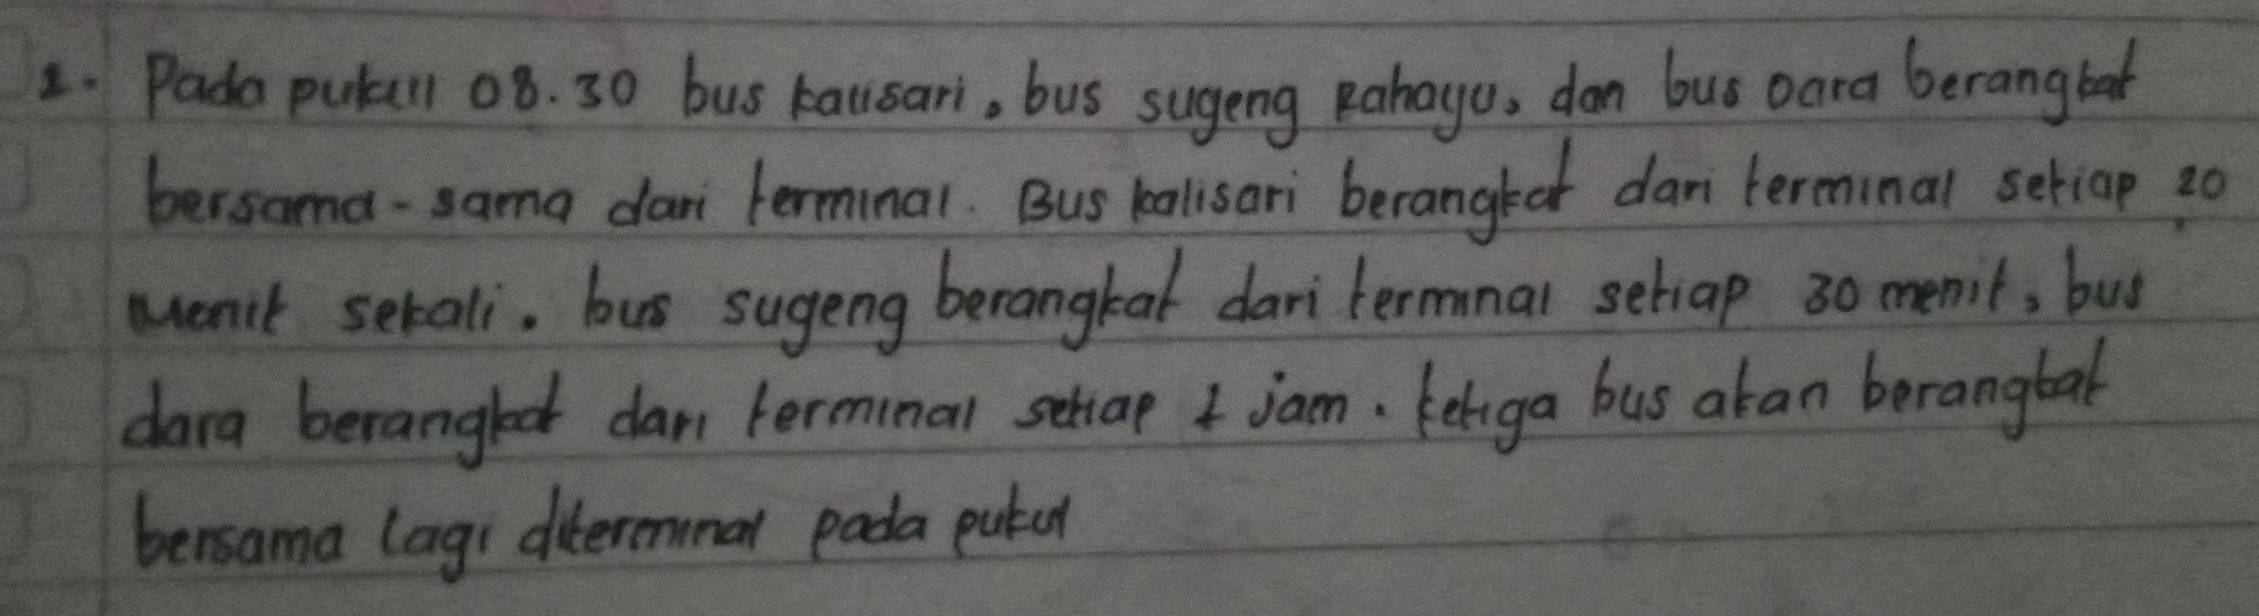 1. Pada pukul 08.30 bus kalisari, bus sugeng Rahayu, dan bus Dara berangkat
bersama-sama dari terminal. Bus kalisari berangkat dari terminal setiap 20
Menit sekali. bus sugeng berangkat dari terminal setiap 30 menit, bus
dara berangkat dari terminal setiap 1 jam. ketiga bus akan berangkat
bersama lagi diterminal pada pukul